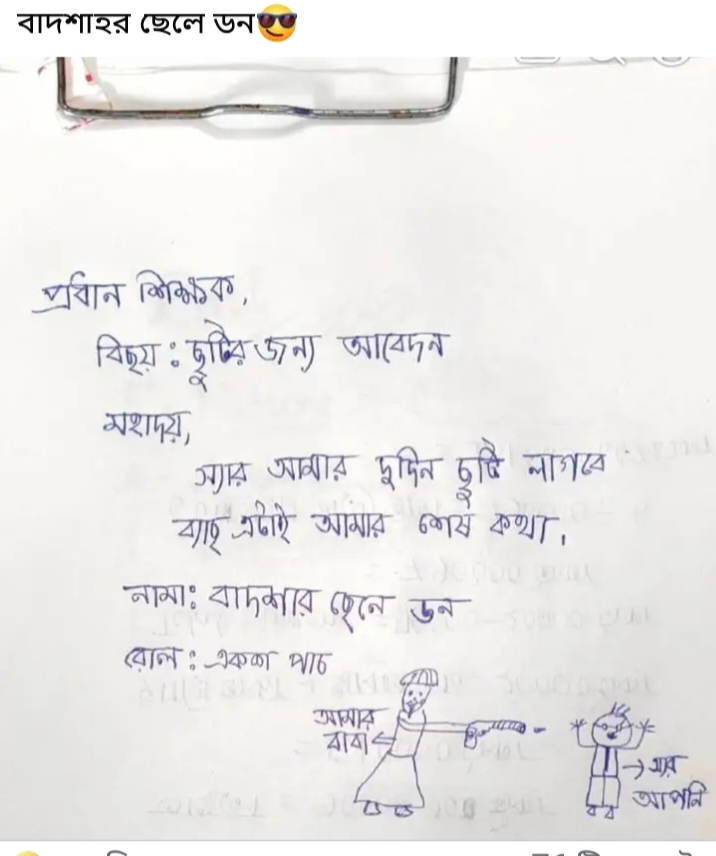 বাদশাহর ছেলে ডন😎
প্রধান শিক্ষক,
বিছয় : ছুটির জন্য আবেদন
মহাদয়,
স্যার আমার দুদিন ছুটি লাগবে
ব্যাছ এটাই আমার শেষ কথা,
নামা: বাদশার ছেলে ডন
রোল : একশ পাচ
আমার
বাবা
স্যার
আপনি